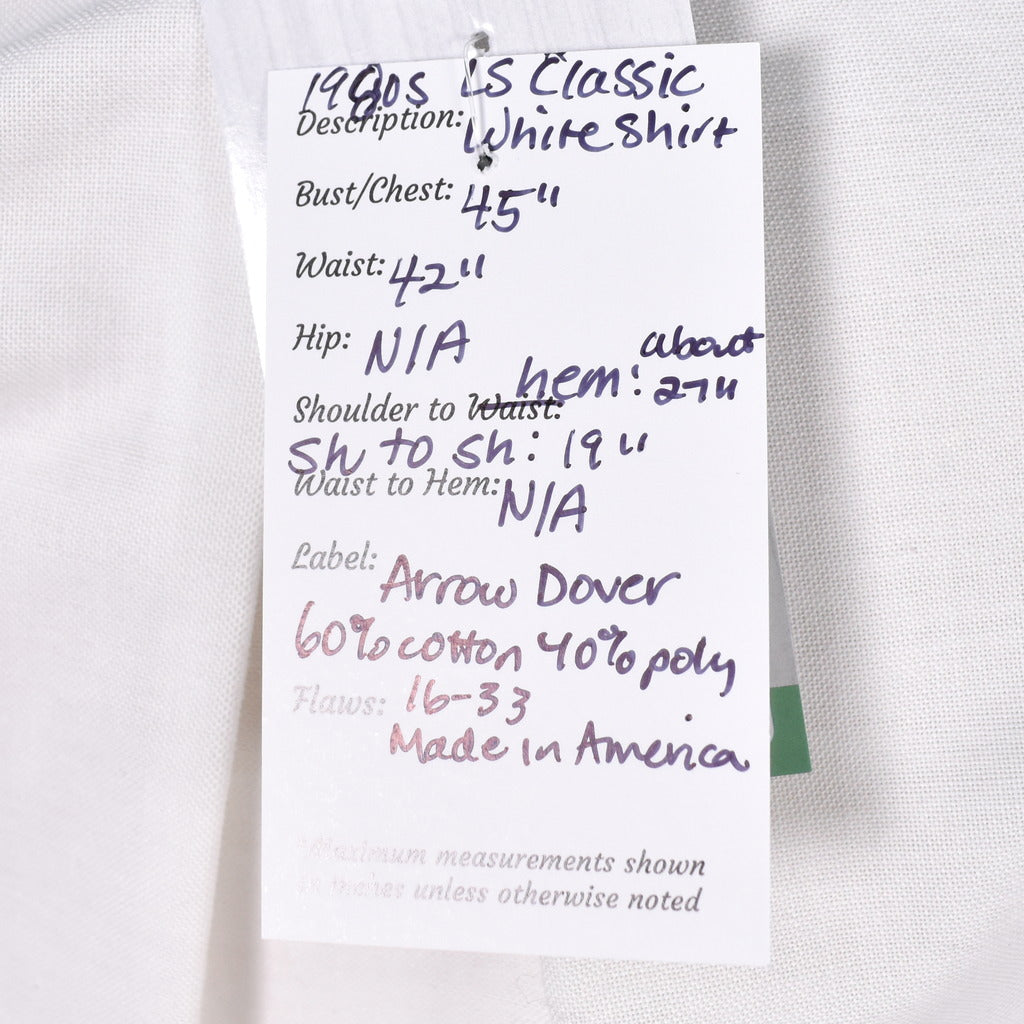 1980s LS Classic
Description: White Shirt
Bust/Chest: 45"
Waist: 42"
Hip: N/A
about
hem: 27"
Shoulder to Waist:
Sh to Sh: 19"
Waist to Hem: N/A
Label: Arrow Dover
60% cotton 40% poly
Flaws: 16-33
Made in America
*Maximum measurements shown
in inches unless otherwise noted